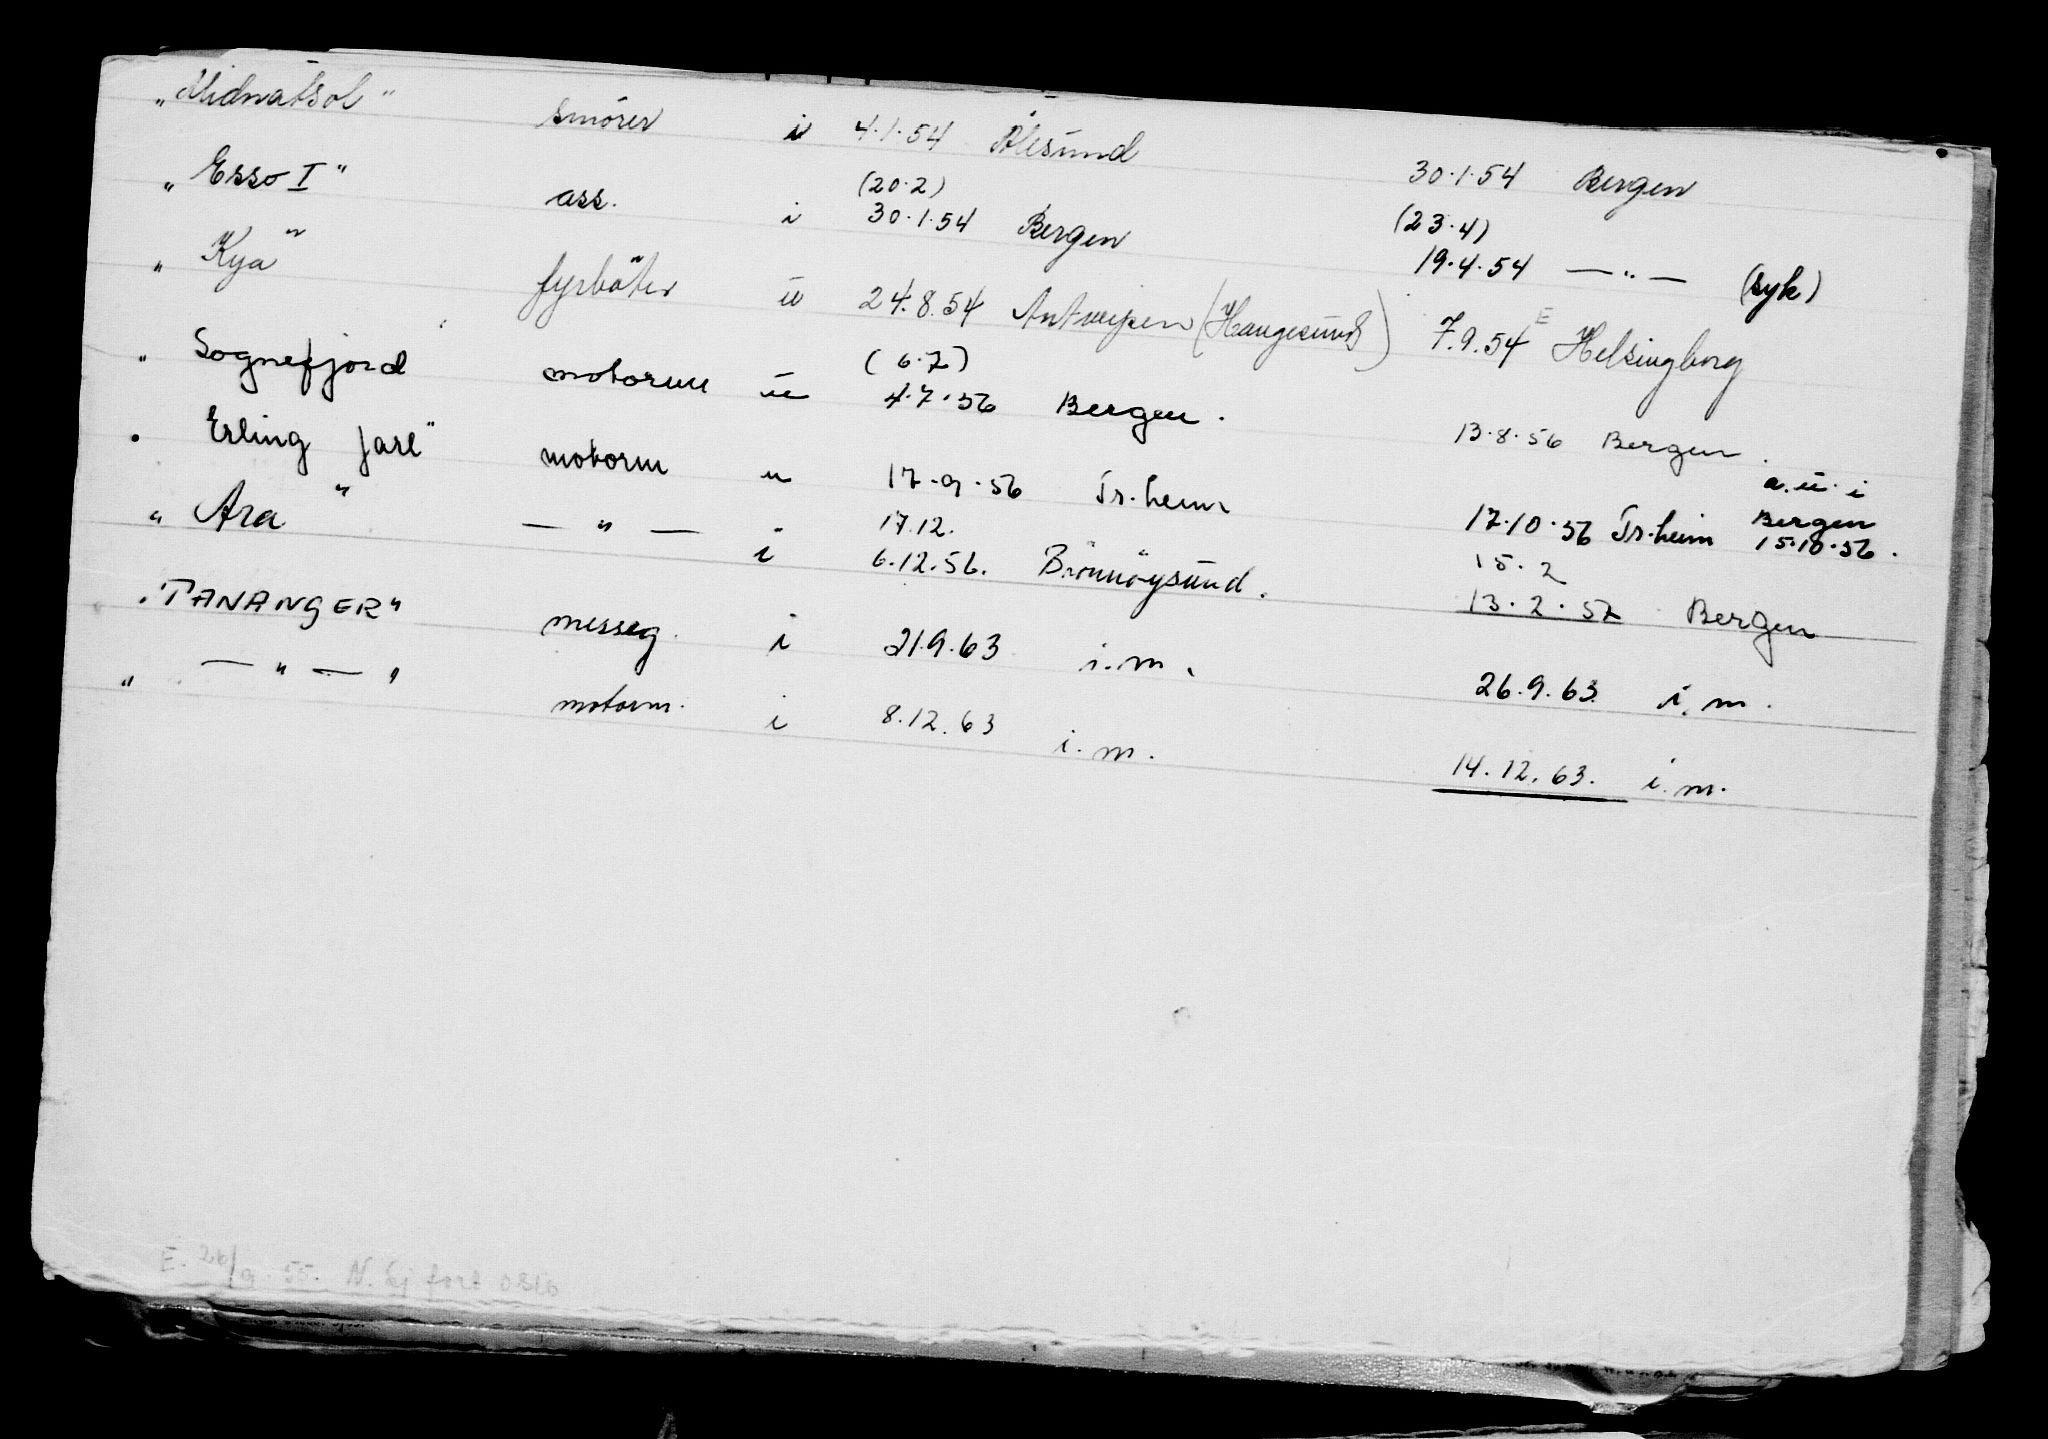 „Midnatsol" smörer i 4.1.54 Ålesund 30.1.54 Bergen
(20.2) (23.4)
„Esso I" ass. i 30.1.54 Bergen 19.4.54 — " — (syk)
„Kya" fyrböter u 24.8.54 Antwerpen (Haugesund) 7.9.54 E Helsingborg
(6.7)
„Sognefjord motorm u 4.7.56 Bergen. 13.8.56 Bergen.
a.u.i
„Erling Jarl" motorm u 17.9.56 Tr.heim 17.10.56 Tr.heim Bergen 15.10.56.
17.12. 15.2
„Ara" — " — i 6.12.56. Brönnöysund. 13.2.57 Bergen
„TANANGER" messeg. i 21.9.63 i.m. 26.9.63 i.m.
„ — " — " motorm. i 8.12.63 i.m. 14.12.63. i.m.
E. 26/9 55. N. Sj fort Oslo